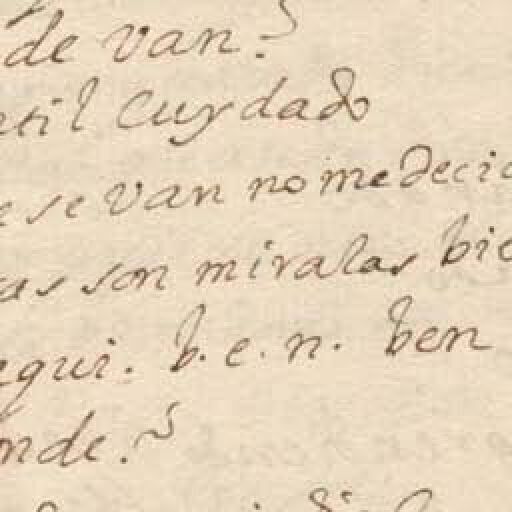 de van?
til Cuydado
e se van no me decia
as son miralas bie
equi. b. e. n. ben
nde.?